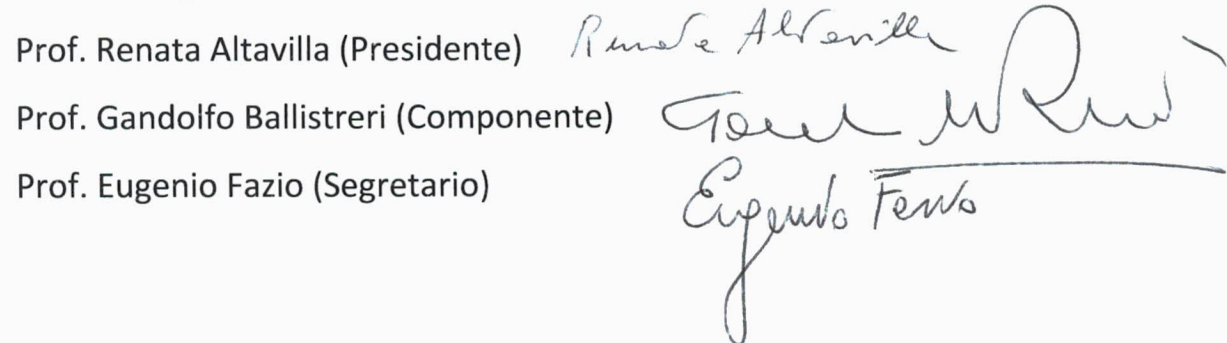 Prof. Renata Altavilla (Presidente) Renata Altavilla
Prof. Gandolfo Ballistreri (Componente)
Prof. Eugenio Fazio (Segretario) Eugenio Fazio